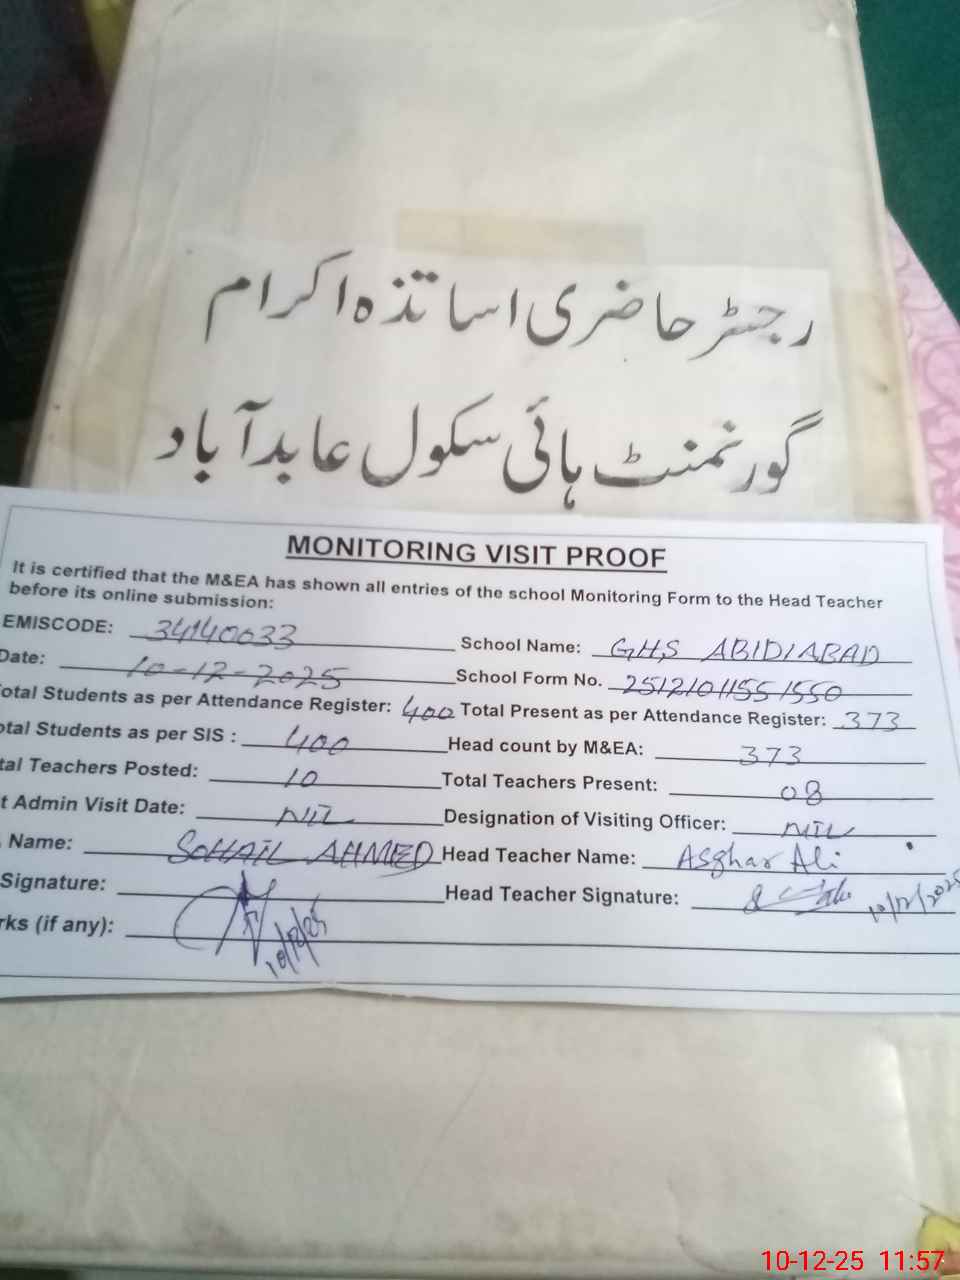 رجسٹر حاضری اساتذہ اکرام
گورنمنٹ ہائی سکول عابد آباد
MONITORING VISIT PROOF
It is certified that the M&EA has shown all entries of the school Monitoring Form to the Head Teacher
before its online submission:
EMISCODE: 34140033 School Name: GHS ABIDIABAD
Date: 10-12-2025 School Form No. 25121011551550
otal Students as per Attendance Register: 400 Total Present as per Attendance Register: 373
otal Students as per SIS : 400 Head count by M&EA: 373
tal Teachers Posted: 10 Total Teachers Present: 08
t Admin Visit Date: NIL Designation of Visiting Officer: NIL
Name: SOHAIL AHMED Head Teacher Name: Asghar Ali
Signature: 10/12/25 Head Teacher Signature: 10/12/2025
rks (if any):
10-12-25 11:57